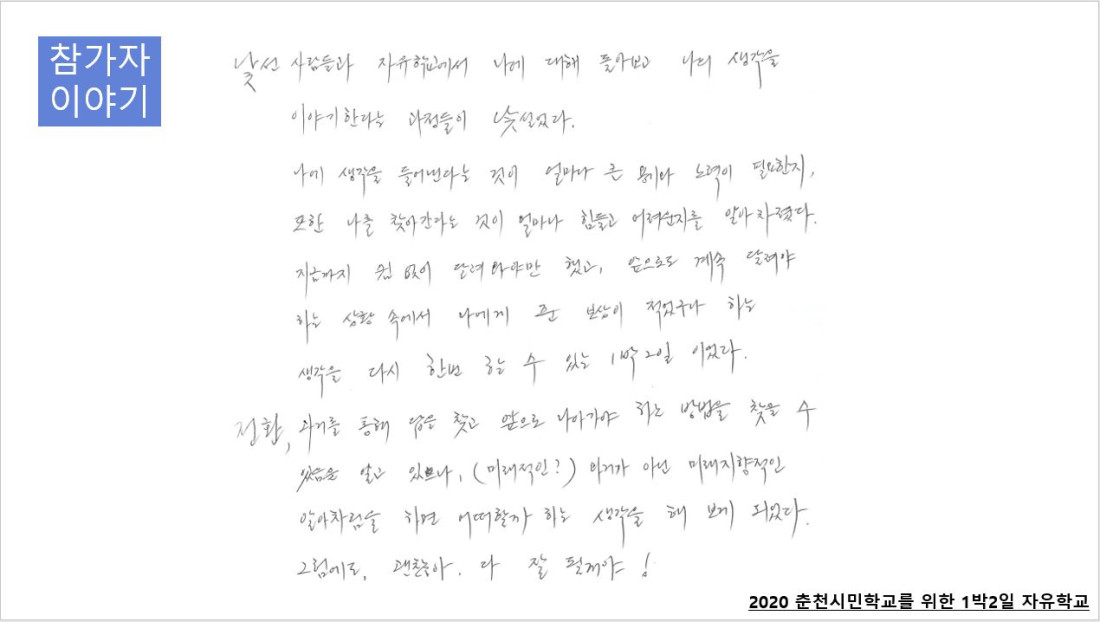 참가자
이야기
낯선 사람들과 자유학교에서 나에 대해 돌아보고 나의 생각을
이야기한다는 과정들이 낯설었다.
나에 생각을 들어낸다는 것이 얼마나 큰 용기와 노력이 필요한지,
또한 나를 찾아간다는 것이 얼마나 힘들고 어려운지를 알아차렸다.
지금까지 쉼 없이 달려와야만 했고, 앞으로도 계속 달려야
하는 상황 속에서 나에게 준 보상이 적었구나 하는
생각을 다시 한번 하는 수 있는 1박2일 이었다.
전환, 과거를 통해 답은 찾고 앞으로 나아가야 하는 방법을 찾을 수
있음은 알고 있으나, (미래적인?) 과거가 아닌 미래지향적인
알아차림을 하면 어떠할까 하는 생각을 해 보게 되었다.
그럼에도, 괜찮아. 다 잘 될거야!
2020 춘천시민학교를 위한 1박2일 자유학교